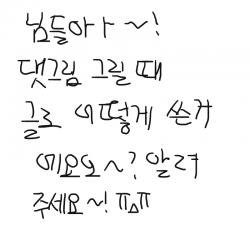 님들아ㅏ~!
댓그림 그릴 때
글로 어떻게 쓴거
에요오~? 알려
주세요~! ㅠㅿㅠ